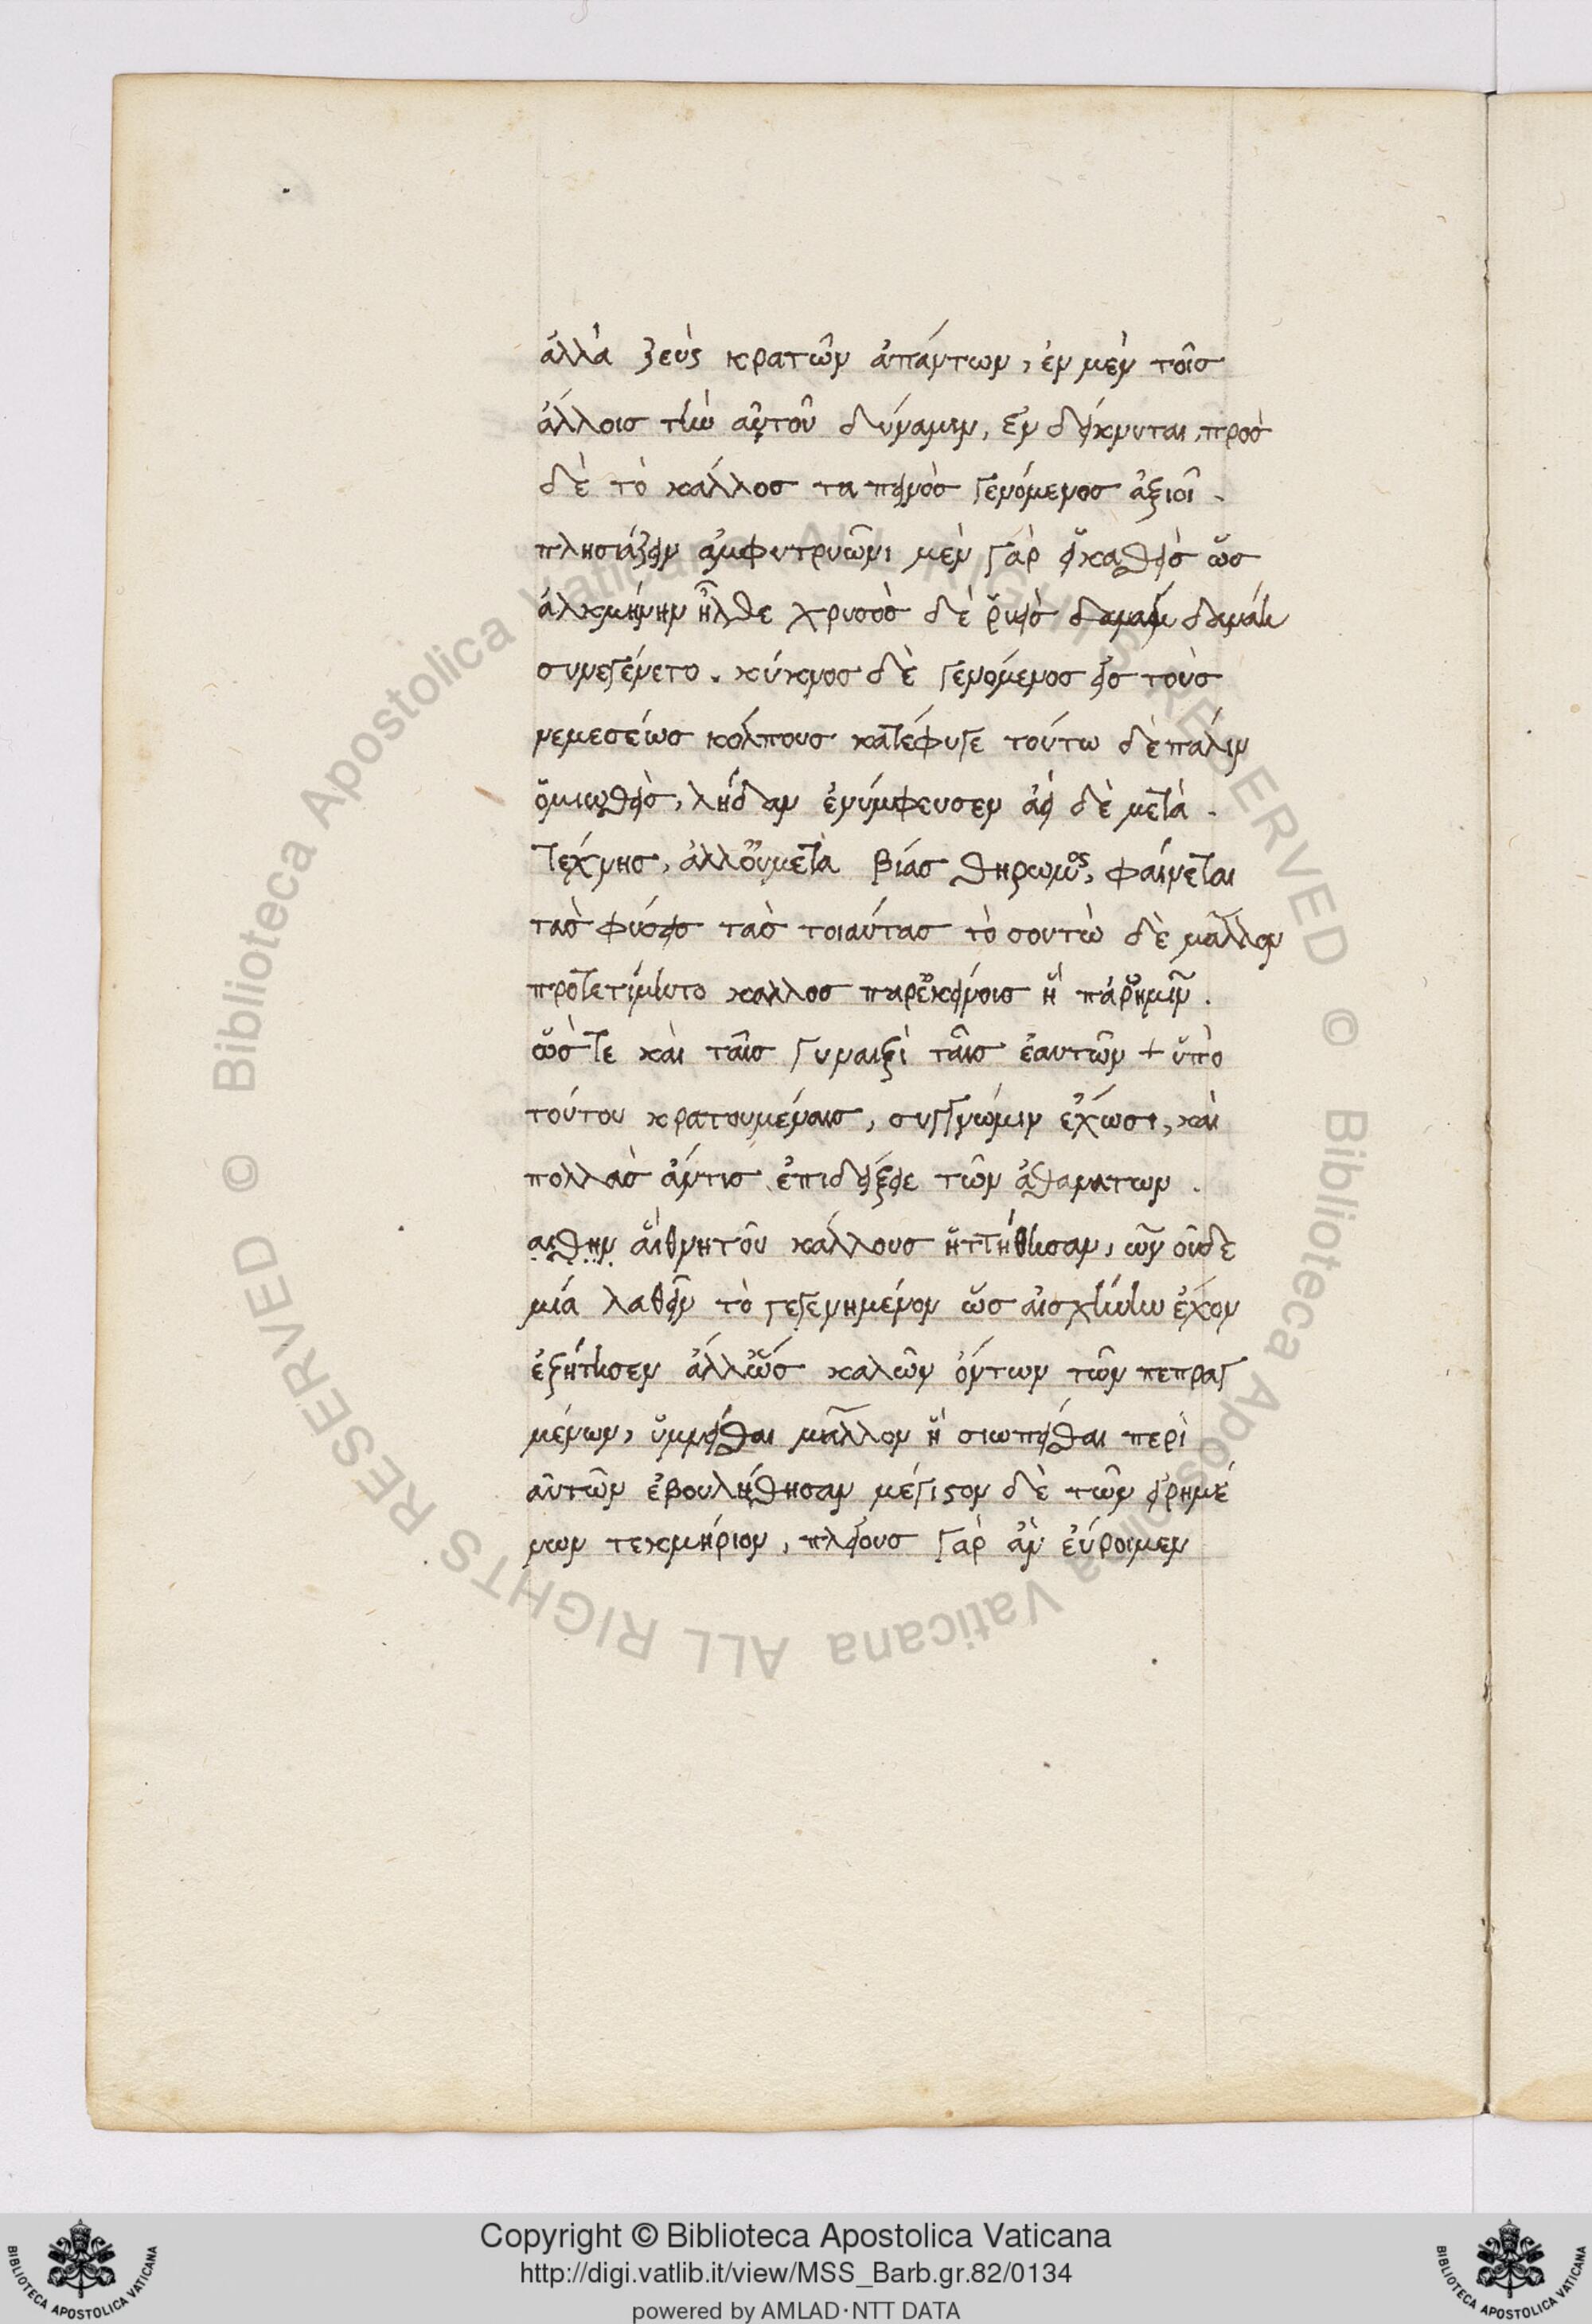 ἀλλὰ ζεὺς κρατῶν ἁπάντων, ἐν μὲν τοῖσ
ἄλλοισ τὴν αὑτοῦ δύναμιν, ἐνδείκνυται, πρὸσ
δὲ τὸ κάλλοσ ταπεινὸσ γενόμενοσ ἀξιοῖ.
πλησιάζειν ἀμφυτρυῶνι μὲν γὰρ εἰκαθεὶσ ὡσ
ἀλκμήνην ἦλθε χρυσὸσ δὲ ῥυεὶσ δαμαεὶ δαμάη
συνεγένετο. κύκνοσ δὲ γενόμενοσ εἰσ τοὺσ
νεμεσέωσ κόλπουσ κατέφυγε τούτω δὲ πάλιν
ὁμιωθεὶσ, λήδαν ἐνύμφευσεν ἀεὶ δὲ μετὰ.
τέχνησ, ἀλλ' οὐ μετὰ βίασ θηρωμος, φαίνεται
τὰσ φύσεισ τὰσ τοιαύτασ τὸ σουτὼ δὲ μᾶλλον
προτετίμητο καλλοσ παρ' ἐκείνοισ ἢ παρ' ἡμῖν.
ὥστε καὶ ταῖσ γυναιξὶ ταῖσ ἑαυτῶν + ὑπὸ
τούτου κρατουμέναισ, συγγνώμιν ἐχώσι, καὶ
πολλὰσ ἄντισ ἐπιδείξειε τῶν ἀθανατων.
αιθην αἳ θνητοῦ κάλλουσ ἡττήθησαν, ὧν οὐδε
μία λαθεῖν τὸ γεγενημένον ὡσ αἰσχύνην ἔχον
ἐζήτησεν ἀλλ' ὡσ καλῶν ὄντων τῶν πεπραγ
μένων, ὑμνεῖσθαι μᾶλλον ἢ σιωπεῖσθαι περὶ
αὐτῶν ἐβουλήθησαν μέγιστον δὲ τῶν εἰρημέ
νων τεκμήριον, πλείουσ γὰρ ἂν εὕροιμεν
Copyright © Biblioteca Apostolica Vaticana
http://digi.vatlib.it/view/MSS_Barb.gr.82/0134
powered by AMLAD·NTT DATA